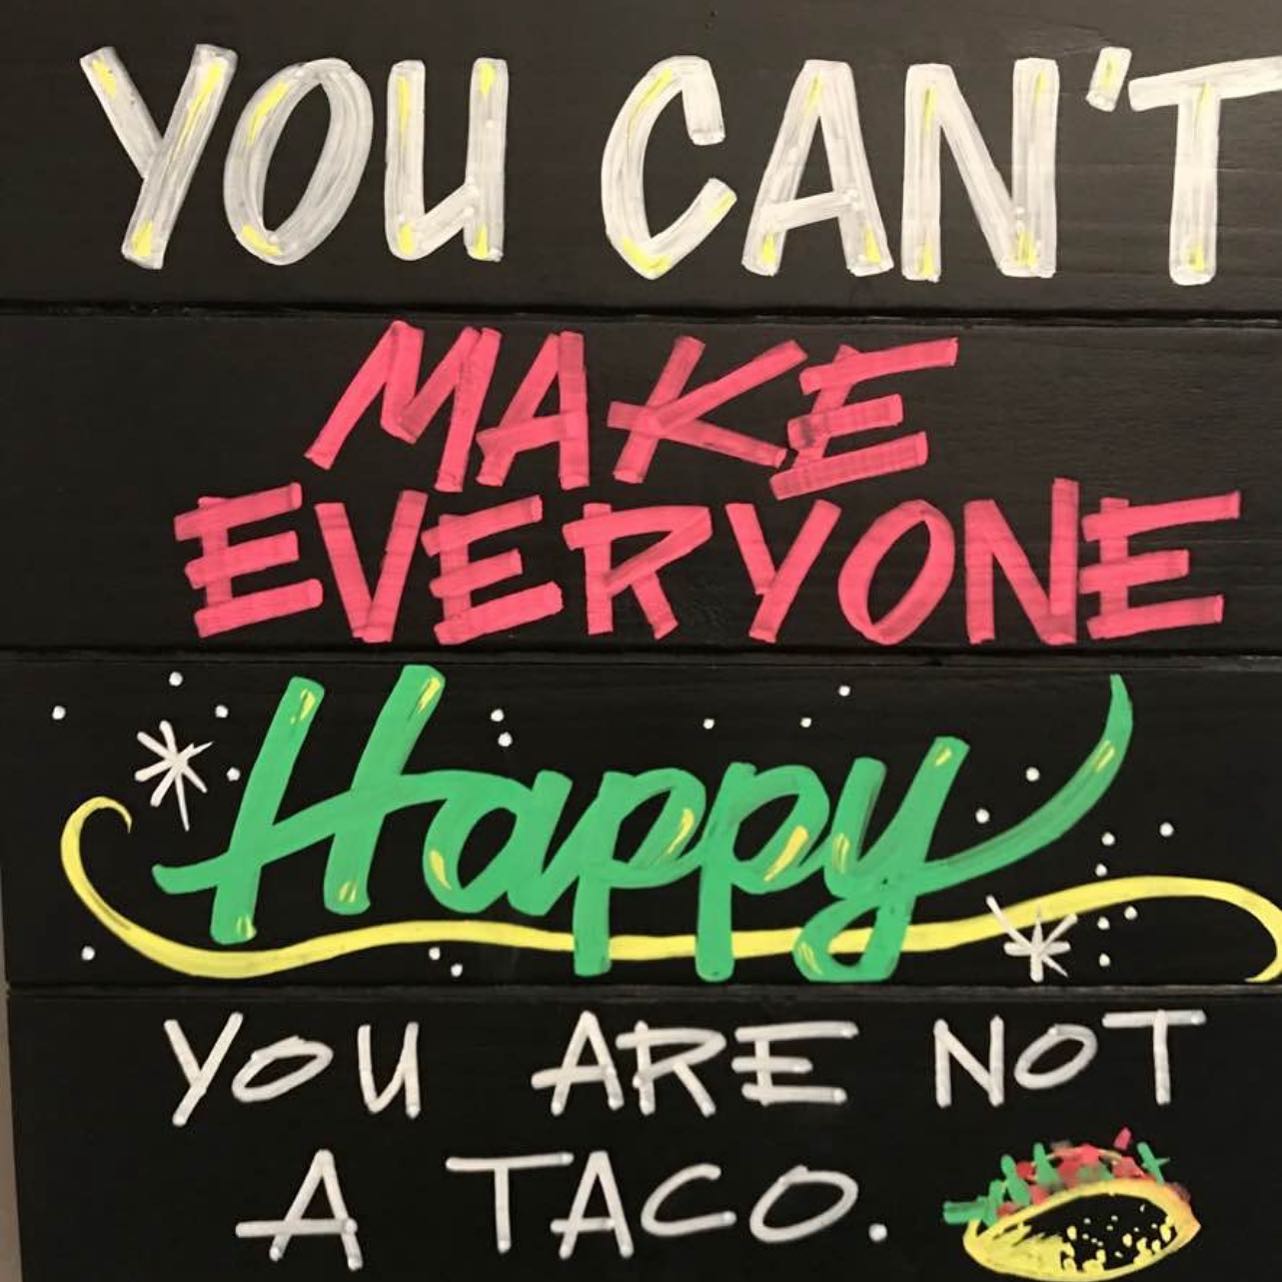 YOU CAN'T
MAKE
EVERYONE
Happy
YOU ARE NOT
A TACO.